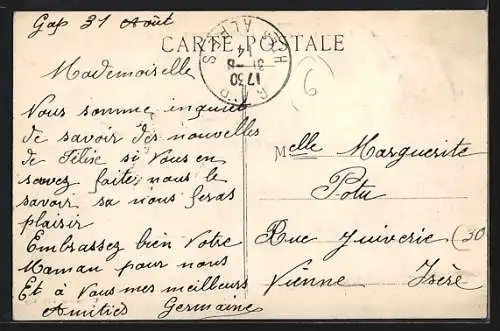 Gap 31 Août
CARTE POSTALE
GAP
Htes ALPES
1730
31-8
14
6
Mademoiselle
Vous somme inquiet
de savoir des nouvelles
de Félise si Vous en
savez faite nous le
savoir sa nous feras
plaisir
Embrassez bien Votre
Maman pour nous
Et à Vous mes meilleurs
Amitiés Germaine
Melle Marguerite
Potu
Rue Juiverie (30
Vienne Isère